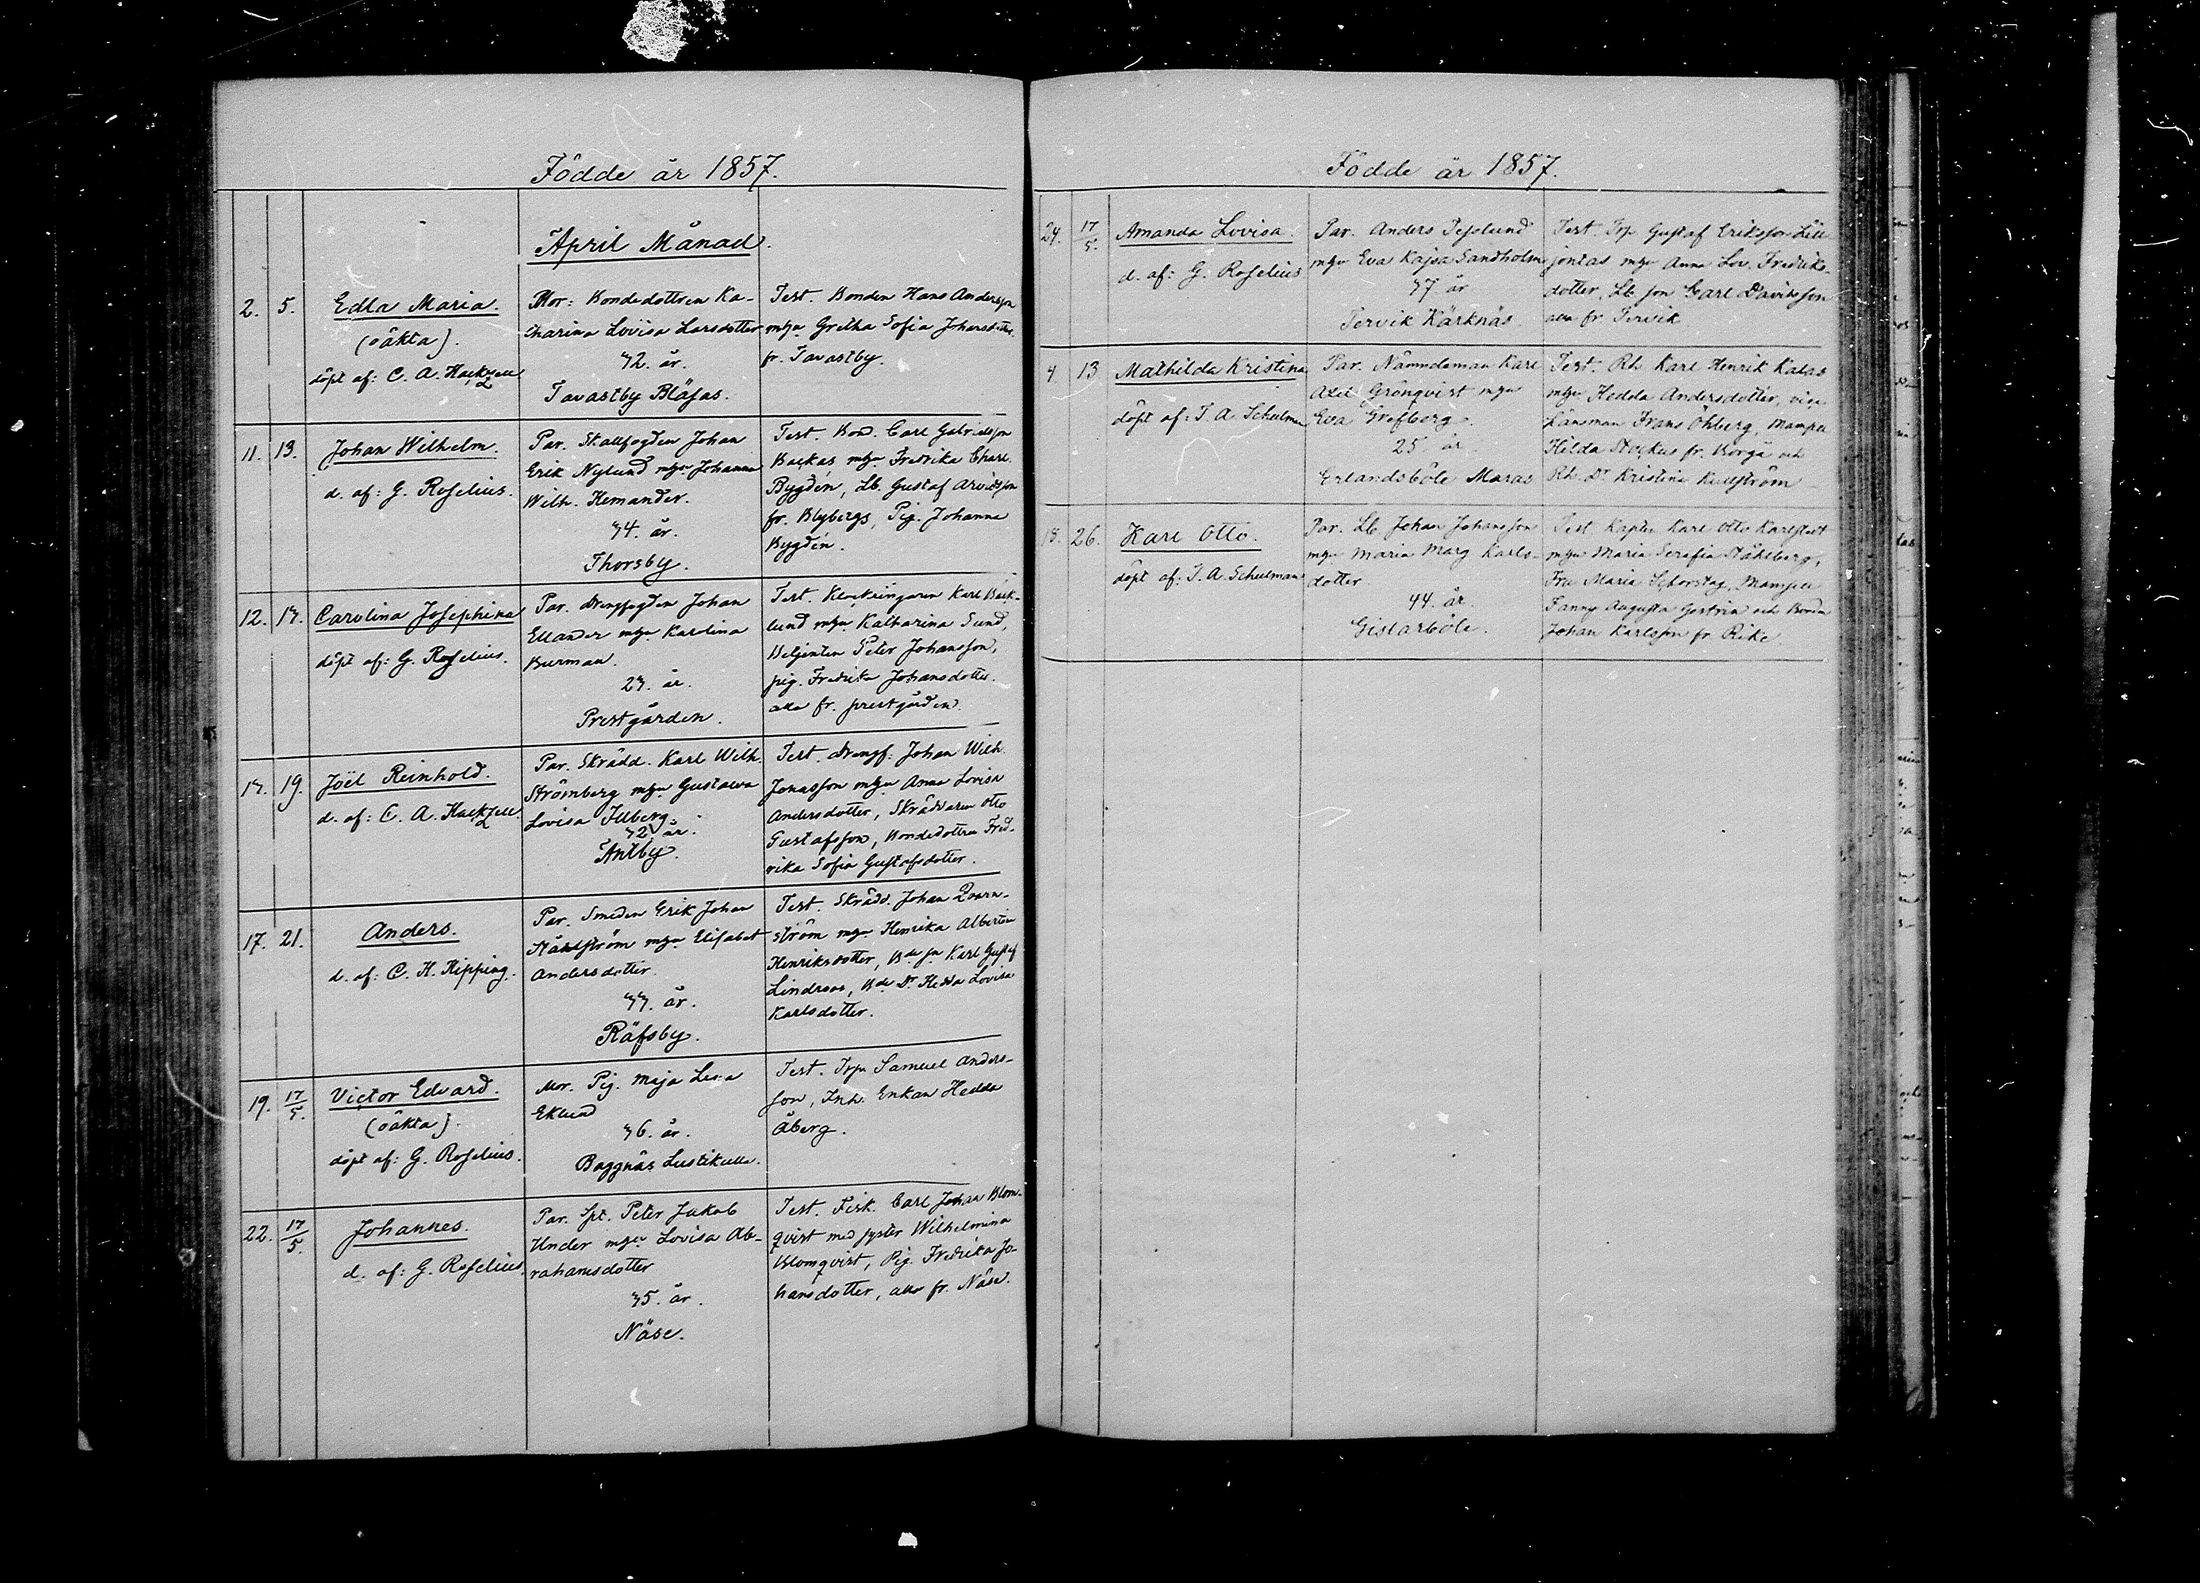 Födde år 1857.
April Månad.
2. 5. Edla Maria.
(oäkta).
döpt af: C. A. Hackzell
Mor: Bondedottren Ka-
tharina Lovisa Larsdotter
32. år.
Tavastby Bläsas.
Test. Bonden Hans Andersson
mhu Gretha Sofia Johansdotter
fr. Tavastby.
11. 13. Johan Wilhelm.
d. af: G. Roselius.
Par. Skallfogden Johan
Erik Nylund mhu Johanna
Wilh. Hemander.
34. år.
Thorsby.
Test. Bond. Carl Gabrielsson
Backas mhu Fredrika Charl.
Bygdén, Lb. Gustaf Arvidsson
fr. Blybergs, Pig. Johanna
Bygdén.
12. 13. Carolina Josephina
döpt af: G. Roselius.
Par. Drengfogden Johan
Ellander mhu Karolina
Burman.
23. år.
Prestgården.
Test. Klockringaren Karl Back-
lund mhu Katharina Sund,
Beljenten Peter Johansson,
pig. Fredrika Johansdotter.
alla fr. prestgården.
13. 19. Joël Reinhold.
d. af: C. A. Hackzell
Par. Skrädd. Karl Wilh.
Strömberg mhu Gustava
Lovisa Illberg.
32 år.
Antby.
Test. Drengf. Johan Wilh.
Jonasson mhu Anna Lovisa
Andersdotter, Skräddaren Otto
Gustafsson, Bondedottren Fred-
rika Sofia Gustafsdotter.
17. 21. Anders.
d. af: C. H. Hipping.
Par. Smeden Erik Johan
Ståhlström mhu Elisabet
Andersdotter.
33. år.
Räfsby.
Test. Skrädd. Johan Qvarn-
ström mhu Henrika Albertin
Henriksdotter, Bde sn Karl Gustaf
Lindroos, Bde Dr Hedda Lovisa
Karlsdotter.
19. 17/5. Victor Edvard.
(oäkta).
döpt af: G. Roselius.
Mor. Pig. Maja Lisa
Eklund
36. år.
Baggnäs Lustikulla.
Test. Trp Samuel Anders-
son, Inh. Enkan Hedda
Åberg.
22. 17/5. Johannes.
d. af: G. Roselius.
Par. Spt. Peter Jakob
Under mhu Lovisa Ab-
rahamsdotter
35. år.
Näse.
Test. Fisk. Carl Johan Blom-
qvist med syster Wilhelmina
Blomqvist, Pig. Fredrika Jo-
hansdotter, alla fr. Näse.
Födde år 1857.
24. 17/5. Amanda Lovisa.
d. af: G. Roselius
Par. Anders Teselund
mhu Eva Kajsa Sandholm
37 år
Tervik Kärknäs
Test. Trp Gustaf Eriksson Lill
jontas mhu Anna Lov. Fredriks-
dotter, Lb. son Carl Davidsson
alla fr. Tervik
4. 13 Mathilda Kristina
döpt af: T. A. Schulman
Par. Nämndeman Karl
Axel Grönqvist mhu
Eva Grefberg.
25. år.
Erlandsböle Maras
Test. Rh. Karl Henrik Kalas
mhu Hedda Andersdotter, vice
Länsman Frans Öhberg, Mamsell
Hilda Stockus fr. Borgå och
Rh. Dr Kristina Kullström
18. 26. Karl Otto.
döpt af: T. A. Schulman
Par. Lb. Johan Johansson
mhu Maria Marg Karls-
dotter.
44. år.
Gislarböle.
Test. Karl Otto Karlstedt
mhu Maria Serafia Ståhlberg,
Fru Maria Mamsell
Fanny Augusta och Bonden
Johan Karlsson fr. Rike.